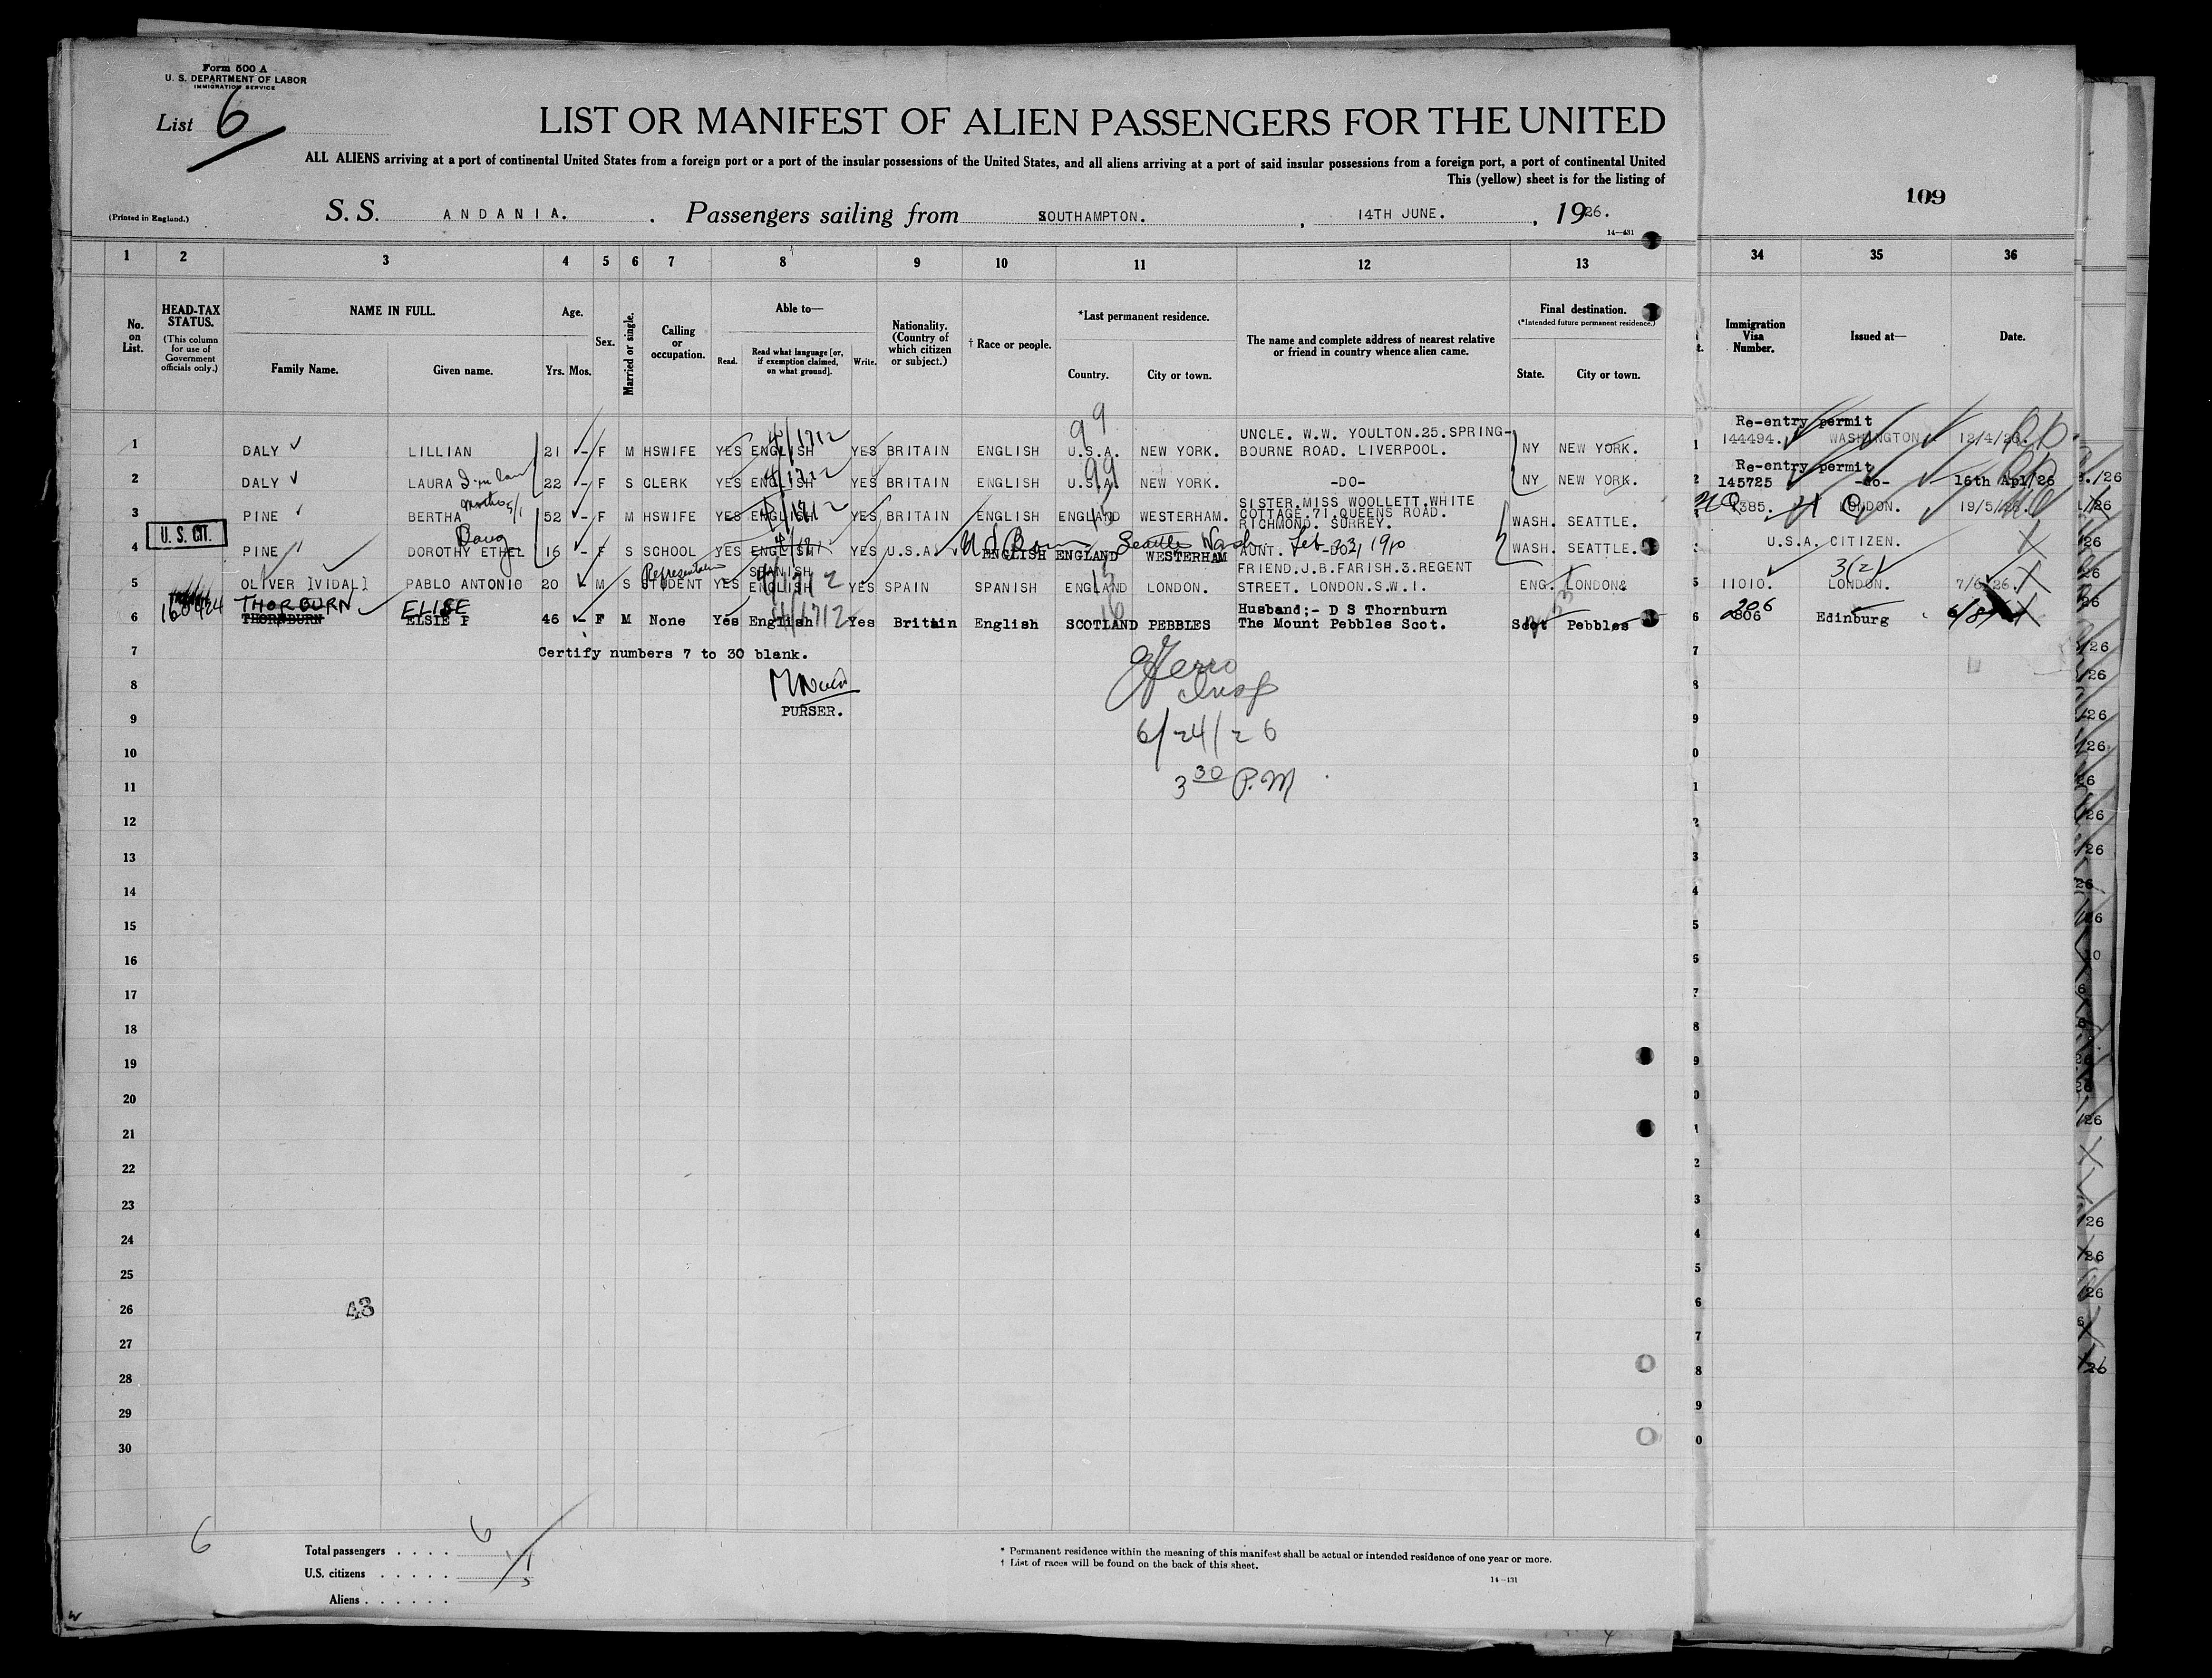 Form 500 A
U. S. DEPARTMENT OF LABOR
IMMIGRATION SERVICE
List 6
LIST OR MANIFEST OF ALIEN PASSENGERS FOR THE UNITED
ALL ALIENS arriving at a port of continental United States from a foreign port or a port of the insular possessions of the United States, and all aliens arriving at a port of said insular possessions from a foreign port, a port of continental United
This (yellow) sheet is for the listing of
109
(Printed in England.)
S. S. ANDANIA. . Passengers sailing from SOUTHAMPTON. , 14TH JUNE. , 1926.
14—431
1 2 3 4 5 6 7 8 9 10 11 12 13 34 35 36
No. on List.
HEAD-TAX STATUS.
(This column for use of Government officials only.)
NAME IN FULL.
Family Name. Given name.
Age.
Yrs. Mos.
Sex.
Married or single.
Calling or occupation.
Able to—
Read. Read what language [or, if exemption claimed, on what ground]. Write.
Nationality. (Country of which citizen or subject.)
† Race or people.
*Last permanent residence.
Country. City or town.
The name and complete address of nearest relative or friend in country whence alien came.
Final destination.
(*Intended future permanent residence.)
State. City or town.
Immigration Visa Number.
Issued at—
Date.
99
UNCLE. W.W. YOULTON.25.SPRING-
Re-entry permit
1 DALY LILLIAN 21 - F M HSWIFE YES ENGLISH 4/1712 YES BRITAIN ENGLISH U.S.A. NEW YORK. BOURNE ROAD. LIVERPOOL. NY NEW YORK. 1 144494. WASHINGTON. 12/4/26.
99
Re-entry permit
2 DALY LAURA 22 - F S CLERK YES ENGLISH 4/1712 YES BRITAIN ENGLISH U.S.A. NEW YORK. -DO- NY NEW YORK. 2 145725 -do- 16th Apl/26
SISTER.MISS WOOLLETT.WHITE
3 PINE BERTHA 52 - F M HSWIFE YES ENGLISH 4/1712 YES BRITAIN ENGLISH ENGLAND WESTERHAM. COTTAGE.71.QUEENS ROAD.
RICHMOND. SURREY. WASH. SEATTLE. LONDON.
U. S. CIT.
Daug
4 PINE DOROTHY ETHEL 16 - F S SCHOOL YES ENGLISH YES U.S.A. U S Born Seattle Wash Feb 1910
ENGLISH ENGLAND WESTERHAM AUNT. -DO- WASH. SEATTLE. U.S.A. CITIZEN.
SPANISH FRIEND.J.B.FARISH.3.REGENT 3(2)
5 OLIVER [VIDAL] PABLO ANTONIO 20 M S STUDENT YES ENGLISH 4/1712 YES SPAIN SPANISH ENGLAND LONDON. STREET. LONDON.S.W.I. ENG. LONDON 5 11010. LONDON. 7/6/26.
THORBURN ELISE Husband;- D S Thornburn 206
6 THORNBURN ELSIE F 46 - F M None Yes English 4/1712 Yes Britain English SCOTLAND PEBBLES The Mount Pebbles Scot. Scot Pebbles 6 Edinburg
7 Certify numbers 7 to 30 blank.
8
PURSER.
Insp
9 6/24/26
10
11 3 30 P.M
12
13
14
15
16
17
18
19
20
21
22
23
24
25
26 43
27
28
29
30
6
Total passengers . . . . 6
U.S. citizens . . . . . 1
Aliens . . . . . . 5
* Permanent residence within the meaning of this manifest shall be actual or intended residence of one year or more.
† List of races will be found on the back of this sheet.
14—431